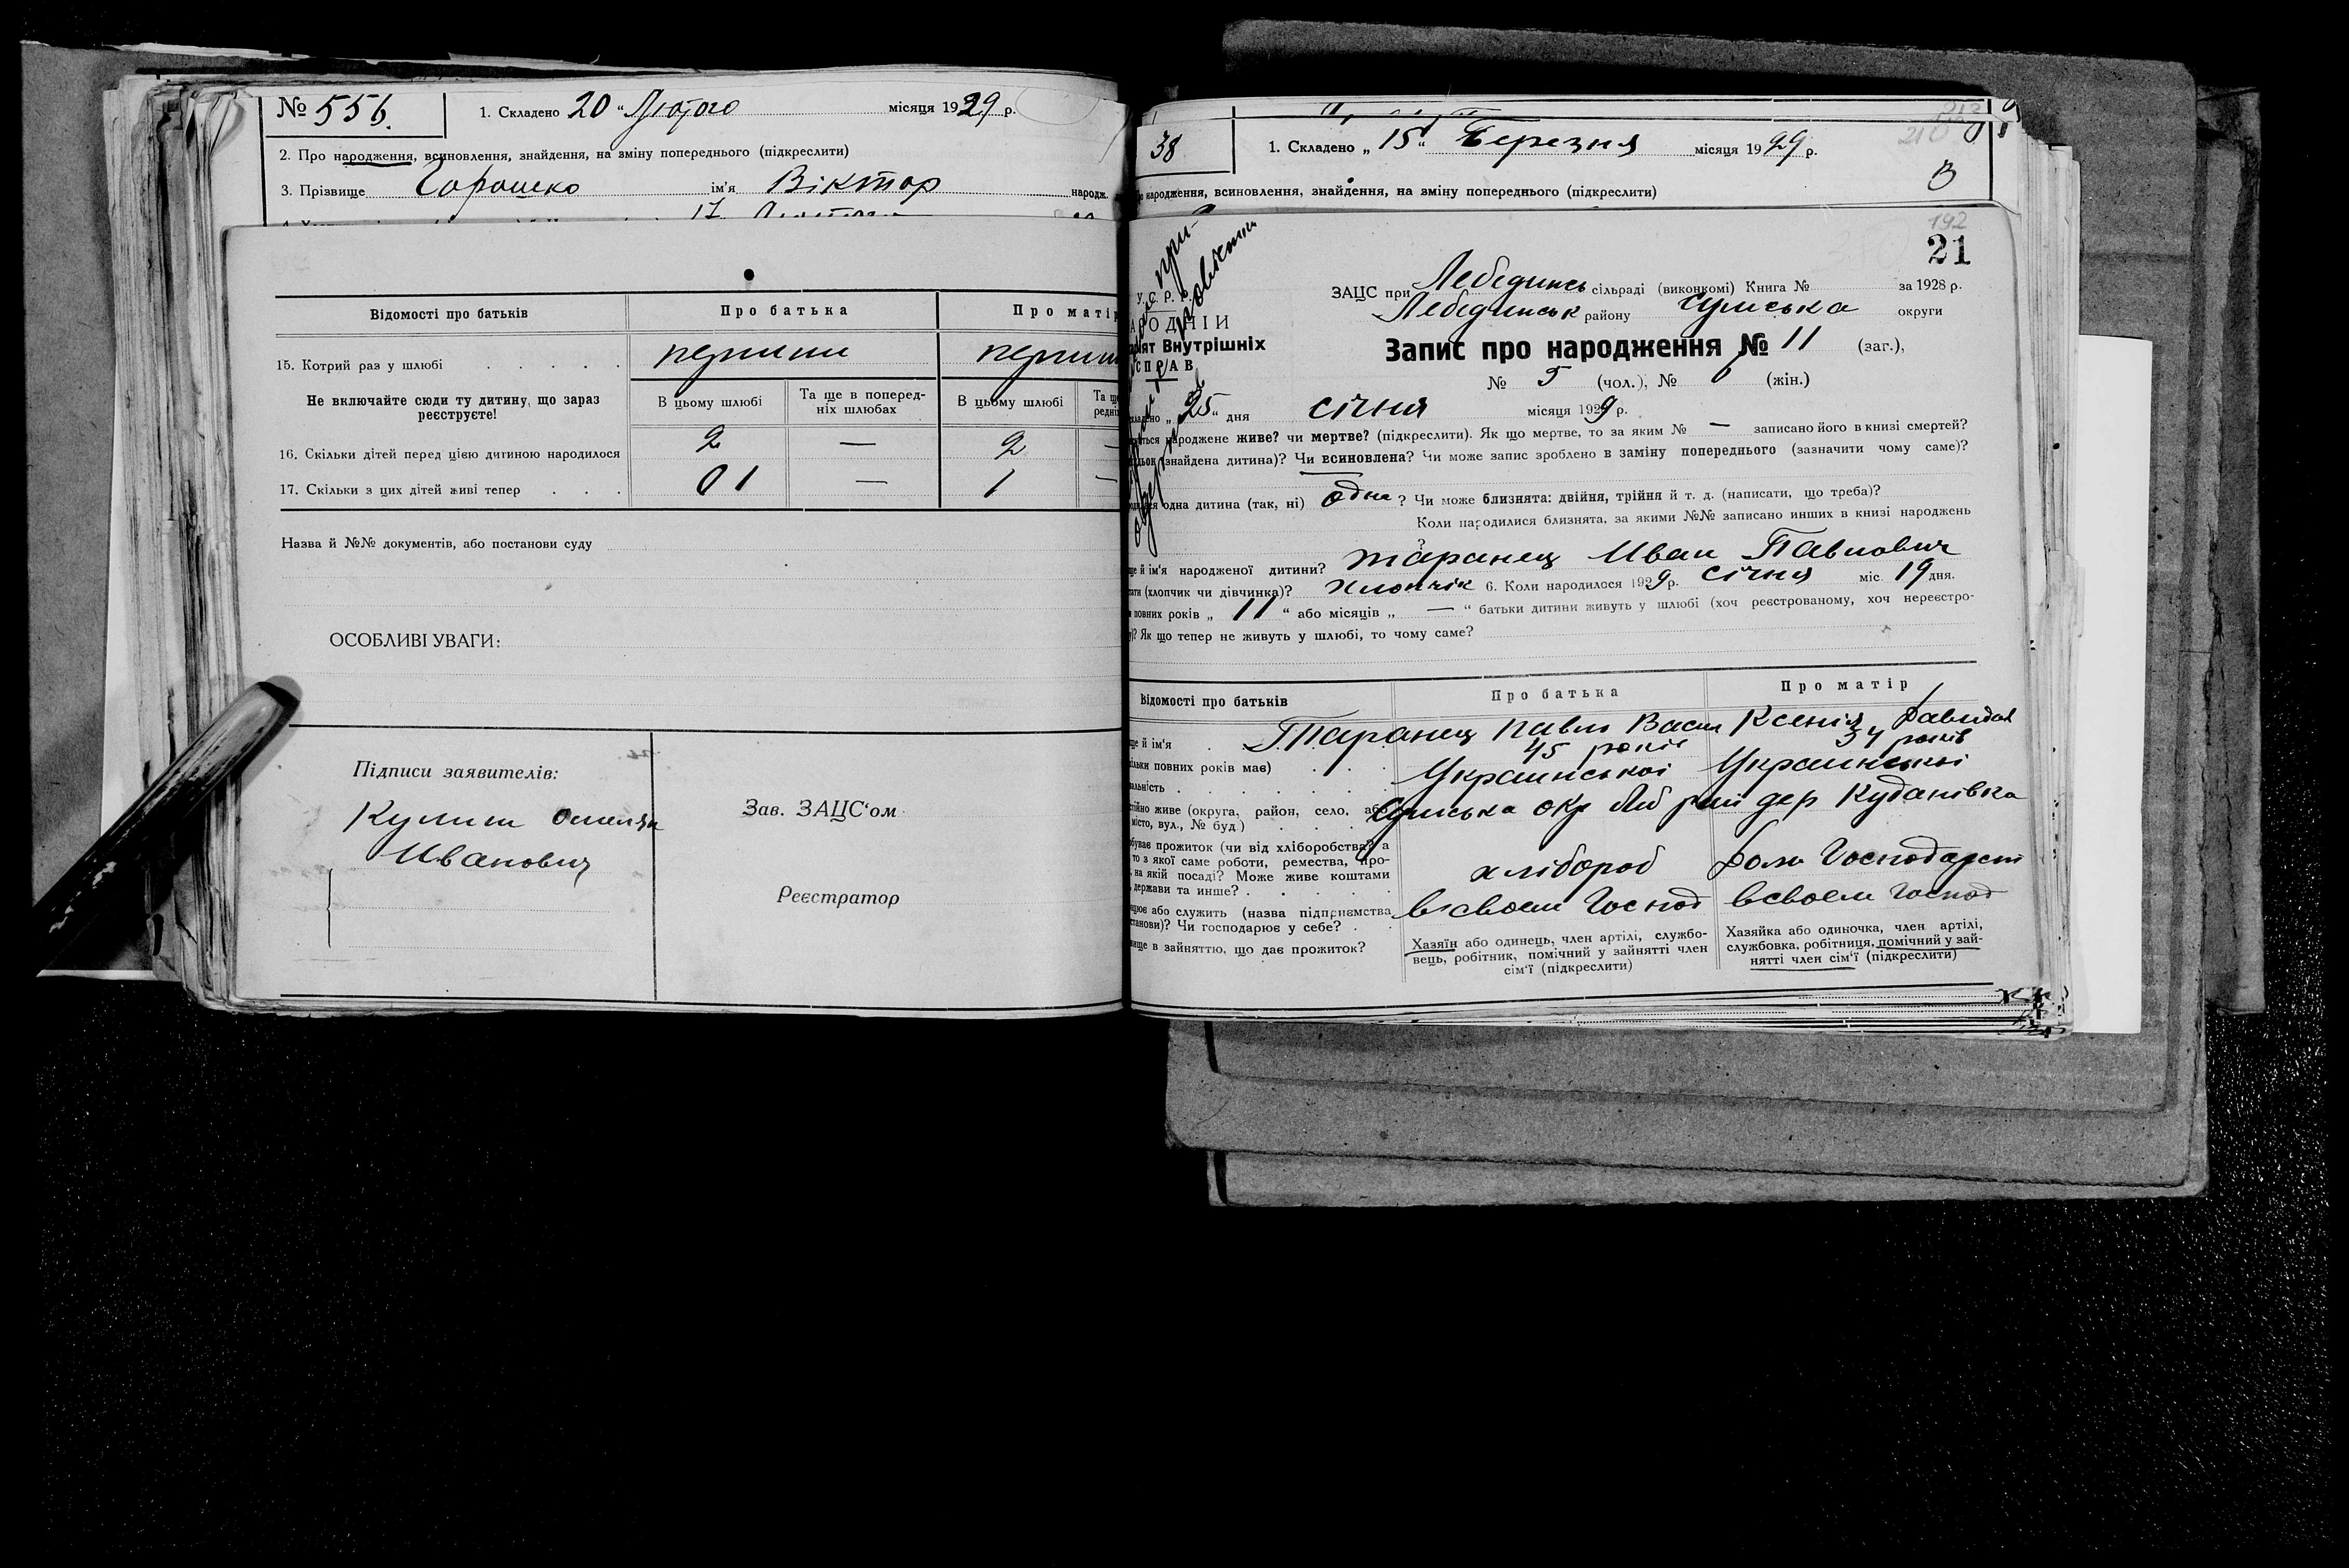 № 556. 1. Складено 20 " Лютого місяця 1929 р.
2. Про народження, всиновлення, знайдення, на зміну попереднього (підкреслити)
3. Прізвище Горошко ім'я Віктор народж.
Відомості про батьків Про батька Про матір
15. Котрий раз у шлюбі . . . . . перший
Не включайте сюди ту дитину, що зараз реєструєте!
В цьому шлюбі Та ще в поперед-
ніх шлюбах В цьому шлюбі Та ще
редні
16. Скільки дітей перед цією дитиною народилося 2 — 2 —
17. Скільки з цих дітей живі тепер . . . 01 — 1 —
Назва й №№ документів, або постанови суду
ОСОБЛИВІ УВАГИ:
Підписи заявителів:
Кулиш
Иванович
Зав. ЗАЦС'ом
Реєстратор
38 1. Складено „ 15 " Березня місяця 1929 р.
народження, всиновлення, знайдення, на зміну попереднього (підкреслити)
В
192
21
У.С.Р.Р.
АРОДНІЙ
Внутрішніх
СПРАВ
ЗАЦС при Лебединсь сільраді (виконкомі) Книга № за 1928 р.
Лебединськ району Сумська округи
Запис про народження № 11 (заг.),
№ 5 (чол.), № (жін.)
„ 25 " дня січня місяця 1929 р.
народжене живе? чи мертве? (підкреслити). Як що мертве, то за яким № — записано його в книзі смертей?
(знайдена дитина)? Чи всиновлена? Чи може запис зроблено в заміну попереднього (зазначити чому саме)?
одна дитина (так, ні) одна ? Чи може близнята: двійня, трійня й т. д. (написати, що треба)?
Коли народилися близнята, за якими №№ записано инших в книзі народжень
?
й ім'я народженої дитини? Таранец Иван Павлович
(хлопчик чи дівчинка)? Хлопчік 6. Коли народилося 1929 р. січня міс. 19 дня.
повних років „ 11 " або місяців „ — " батьки дитини живуть у шлюбі (хоч реєстрованому, хоч нереєстро-
? Як що тепер не живуть у шлюбі, то чому саме?
Відомості про батьків Про батька Про матір
й ім'я . Таранец Павло Васил Ксенія
повних років має) . . . 45 років 34 років
Украинськоі Украинськоі
живе (округа, район, село, або
місто, вул., № буд) . . . Сумська окр Леб рай дер Кудановка
прожиток (чи від хліборобства? а
то з якої саме роботи, ремества, про-
на якій посаді? Може живе коштами
держави та инше? . хлібороб дом Господарст
або служить (назва підприємства
)? Чи господарює у себе? . в своем Господ в своем Господ
в зайняттю, що дає прожиток?
Хазяїн або одинець, член артілі, службо-
вець, робітник, помічний у зайнятті член
сім'ї (підкреслити)
Хазяйка або одиночка, член артілі,
службовка, робітниця, помічний у зай-
нятті член сім'ї (підкреслити)